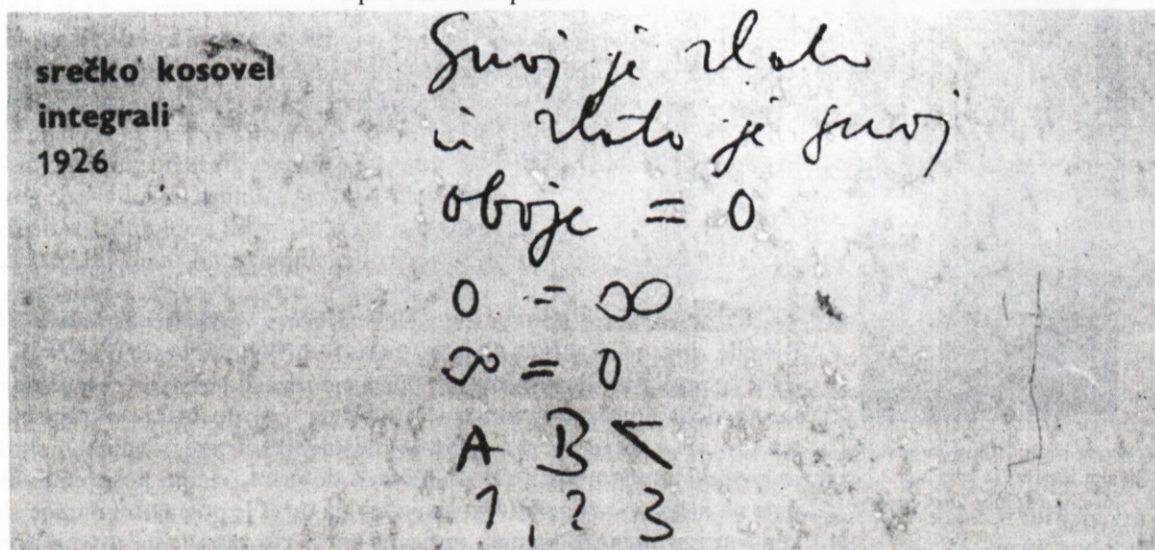 srečko kosovel
integrali
1926
Gnoj je zlato
in zlato je gnoj
oboje = 0
0 = ∞
∞ = 0
A B <
1, 2 3